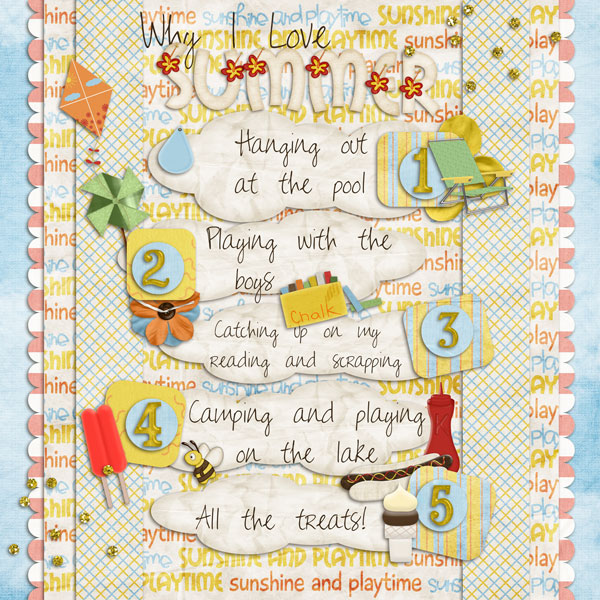 Why I Love
SUMMER
Hanging out
at the pool
1
2
Playing with the
boys
Chalk
Catching up on my
reading and scrapping
3
4
Camping and playing
on the lake
All the treats!
5
SUNSHINE AND PLAYTIME
sunshine and playtime